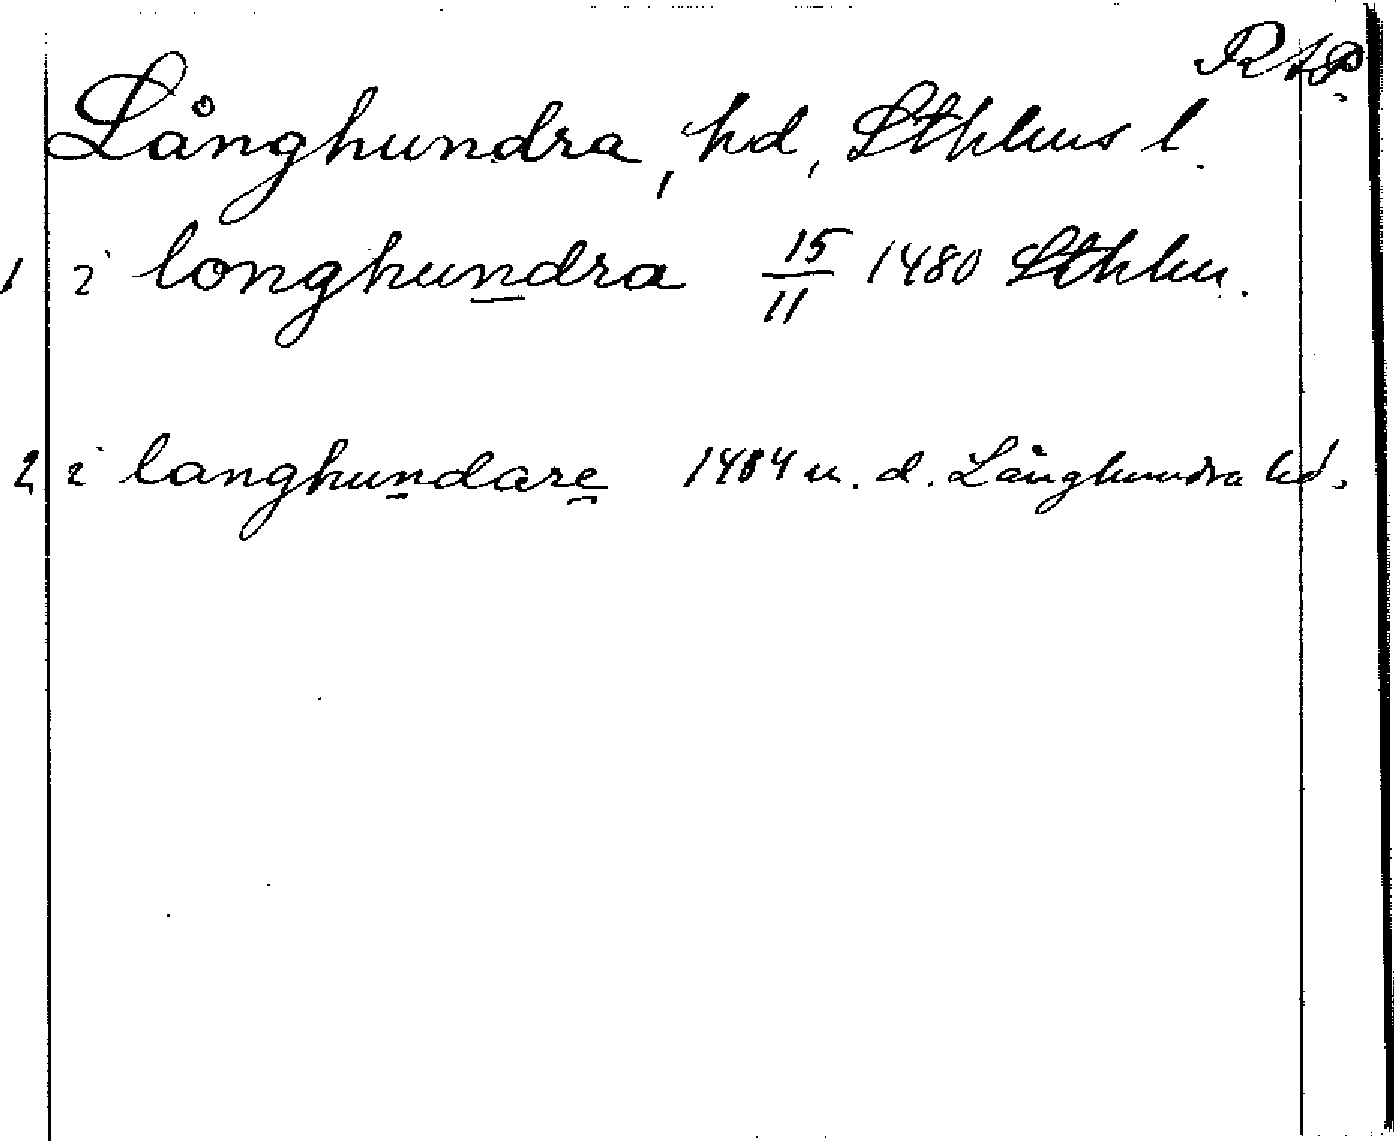 RAP.
Långhundra, hd, Sthlms l.
1 i longhundra 15/11 1480 Sthlm.
2 i langhundare 1484 u. d. Långhundra hd.